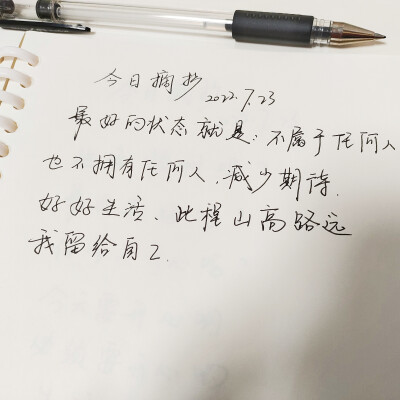 今日摘抄
2022.7.23
最好的状态就是:不属于任何人
也不拥有任何人,减少期待.
好好生活、此程山高路远
我留给自己.